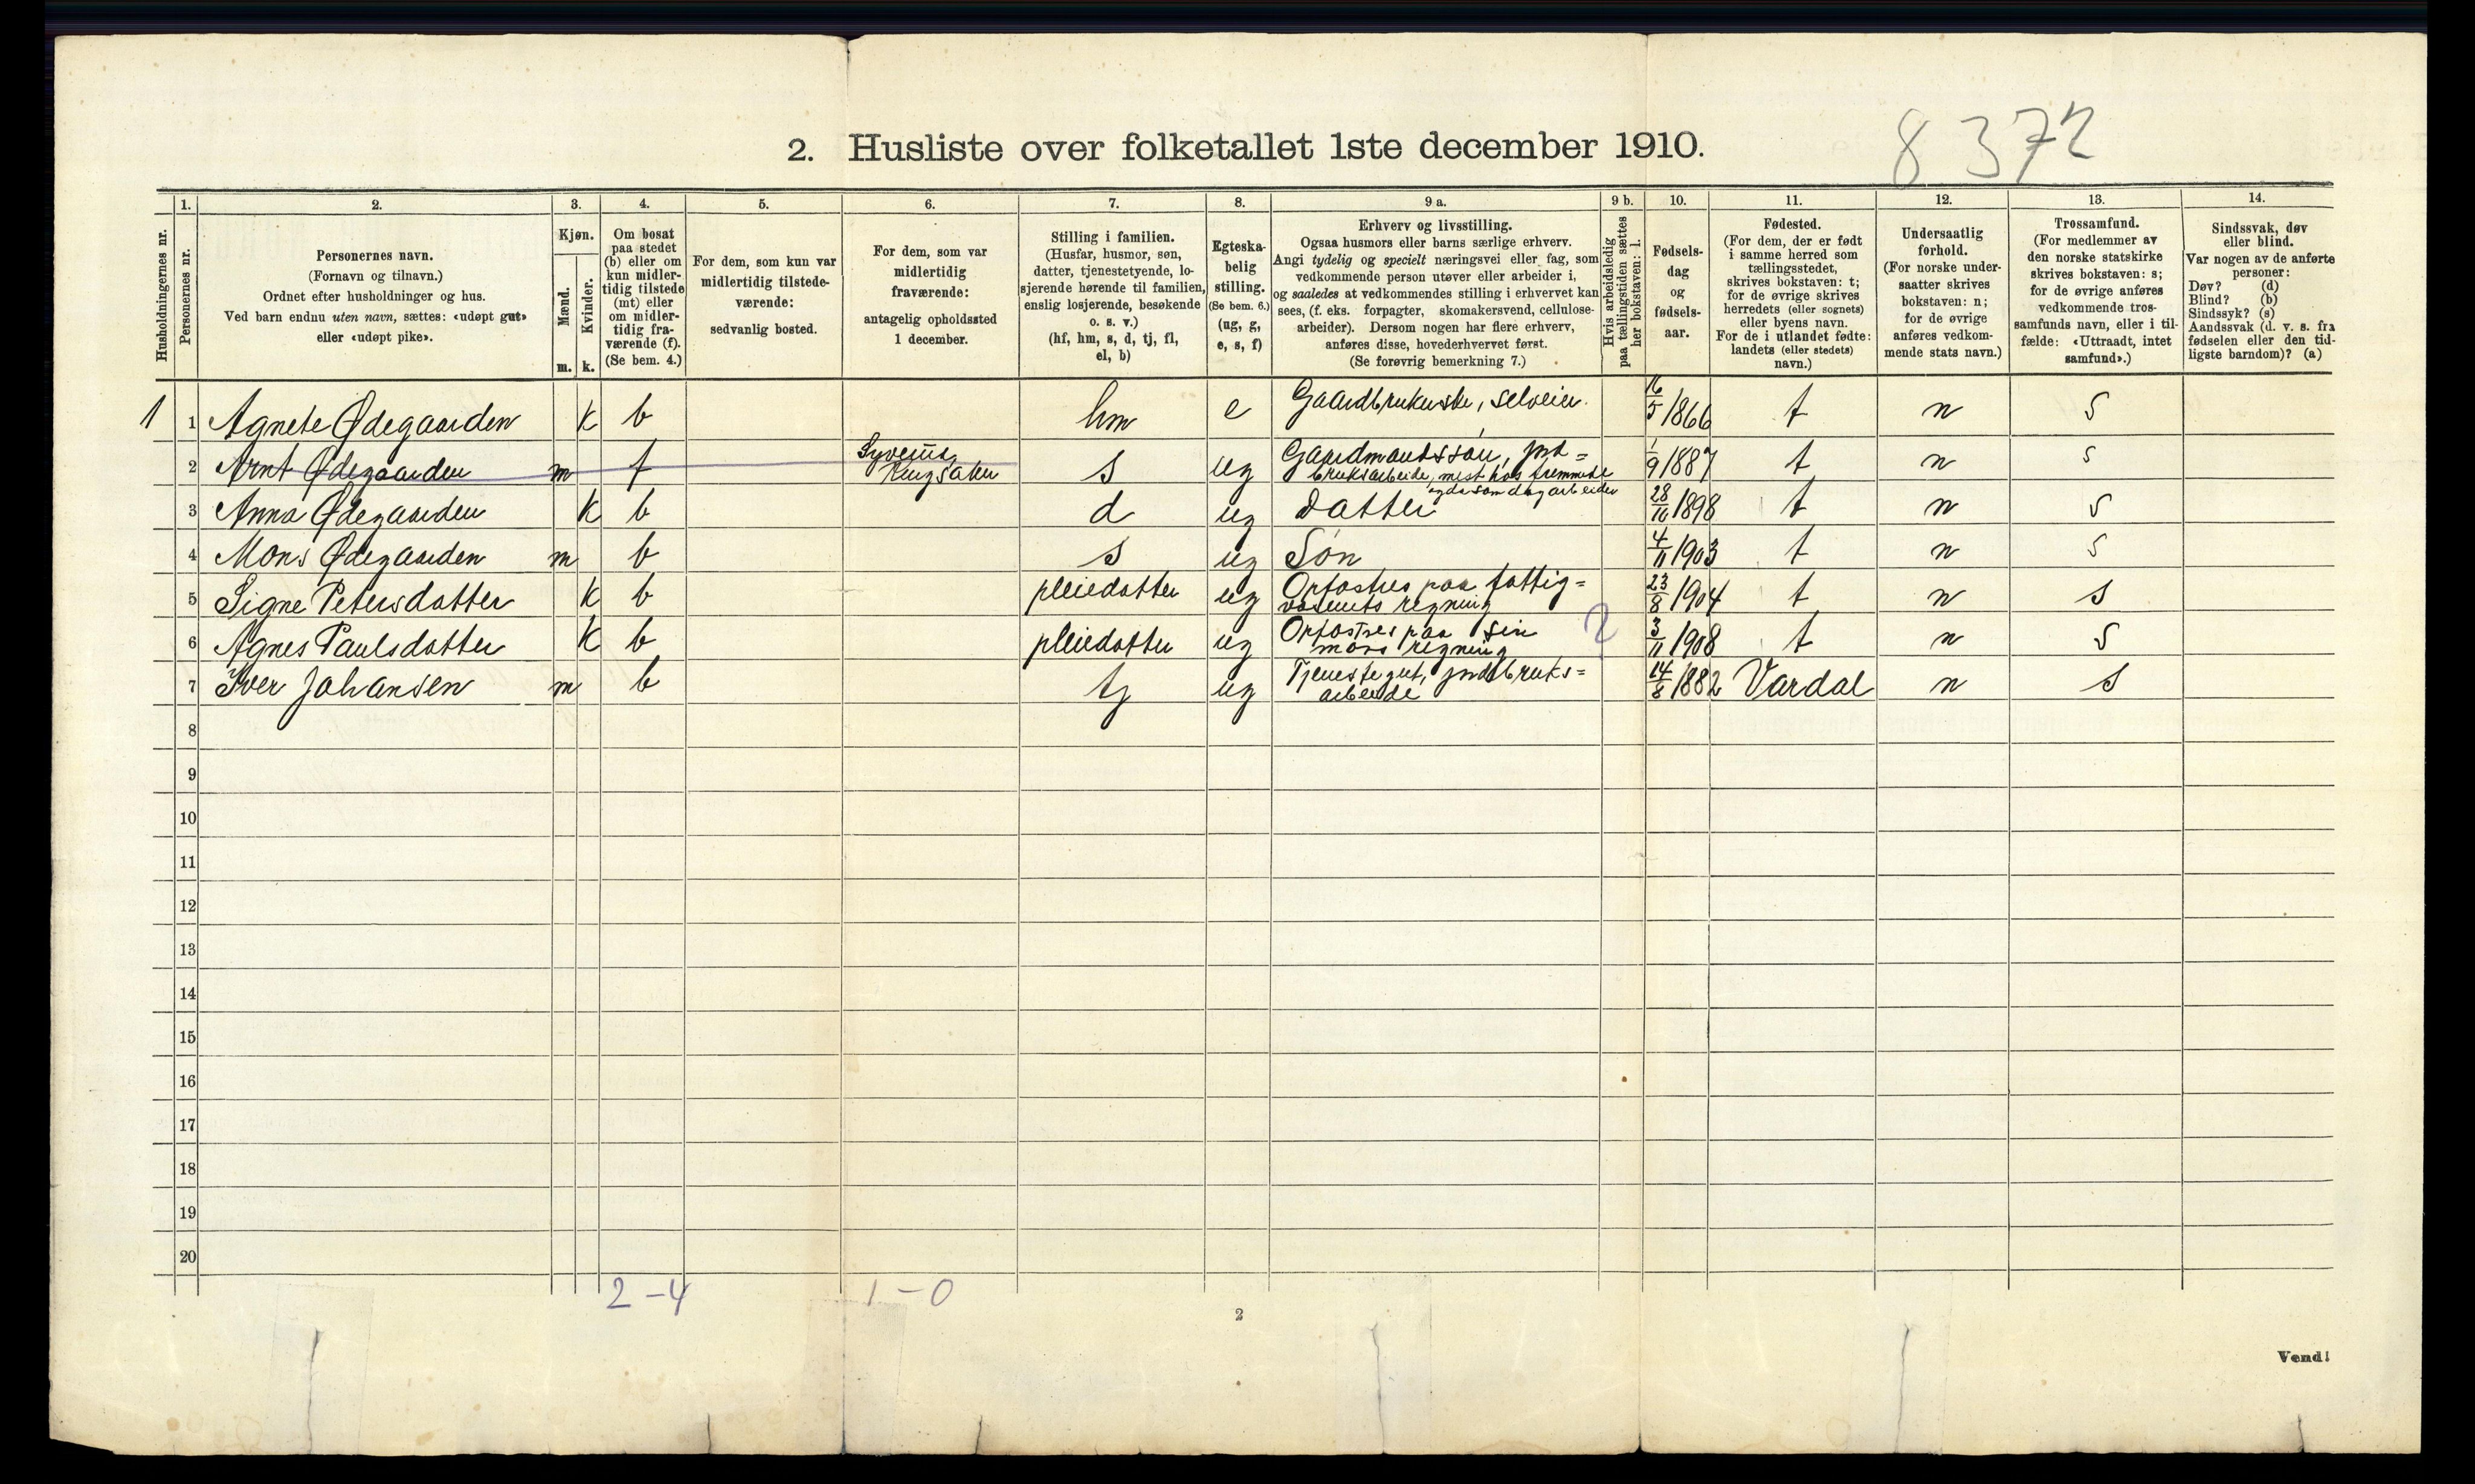 8372
2. Husliste over folketallet 1ste december 1910.
Husholdningernes nr.
1.
Personernes nr.
2.
Personernes navn.
(Fornavn og tilnavn.)
Ordnet efter husholdninger og hus.
Ved barn endnu uten navn, sættes: «udøpt gut»
eller «udøpt pike».
3.
Kjøn.
Mænd.
Kvinder.
m. k.
4.
Om bosat
paa stedet
(b) eller om
kun midler-
tidig tilstede
(mt) eller
om midler-
tidig fra-
værende (f).
(Se bem. 4.)
5.
For dem, som kun var
midlertidig tilstede-
værende:
sedvanlig bosted.
6.
For dem, som var
midlertidig
fraværende:
antagelig opholdssted
1 december.
7.
Stilling i familien.
(Husfar, husmor, søn,
datter, tjenestetyende, lo-
sjerende hørende til familien,
enslig losjerende, besøkende
o. s. v.)
(hf, hm, s, d, tj, fl,
el, b)
8.
Egteska-
belig
stilling.
(Se bem. 6.)
(ug, g,
e, s, f)
9 a.
Erhverv og livsstilling.
Ogsaa husmors eller barns særlige erhverv.
Angi tydelig og specielt næringsvei eller fag, som
vedkommende person utøver eller arbeider i,
og saaledes at vedkommendes stilling i erhvervet kan
sees, (f. eks. forpagter, skomakersvend, cellulose-
arbeider). Dersom nogen har flere erhverv,
anføres disse, hovederhvervet først.
(Se forøvrig bemerkning 7.)
9 b.
Hvis arbeidsledig
paa tællingstiden sættes
her bokstaven: l.
10.
Fødsels-
dag
og
fødsels-
aar.
11.
Fødested.
(For dem, der er født
i samme herred som
tællingsstedet,
skrives bokstaven: t;
for de øvrige skrives
herredets (eller sognets)
eller byens navn.
For de i utlandet fødte:
landets (eller stedets)
navn.)
12.
Undersaatlig
forhold.
(For norske under-
saatter skrives
bokstaven: n;
for de øvrige
anføres vedkom-
mende stats navn.)
13.
Trossamfund.
(For medlemmer av
den norske statskirke
skrives bokstaven: s;
for de øvrige anføres
vedkommende tros-
samfunds navn, eller i til-
fælde: «Uttraadt, intet
samfund».)
14.
Sindssvak, døv
eller blind.
Var nogen av de anførte
personer:
Døv? (d)
Blind? (b)
Sindssyk? (s)
Aandssvak (d. v. s. fra
fødselen eller den tid-
ligste barndom)? (a)
1 1 Agnete Ødegaarden k b hm e Gaardbrukerske, selveier. 16/5 1866 t n s
2 Arnt Ødegaarden m f s ug Gaardmandssøn, jord=
bruksarbeide, mest hos fremmede
og da som dagarbeider 1/9 1887 t n s
3 Anna Ødegaarden k b d ug Datter 28/10 1898 t n s
4 Mons Ødegaarden m b s ug Søn 4/11 1903 t n s
5 Signe Petersdatter k b pleiedatter ug Opfostres paa fattig=
væsenets regning 23/8 1904 t n s
6 Agnes Paulsdatter k b pleiedatter ug Opfostres paa sin
mors regning 2 3/11 1908 t n s
7 Iver Johansen m b tj ug Tjenestegut, jordbruks=
arbeide 14/8 1882 Vardal n s
8
9
10
11
12
13
14
15
16
17
18
19
20
2-4 1-0
2
Vend!